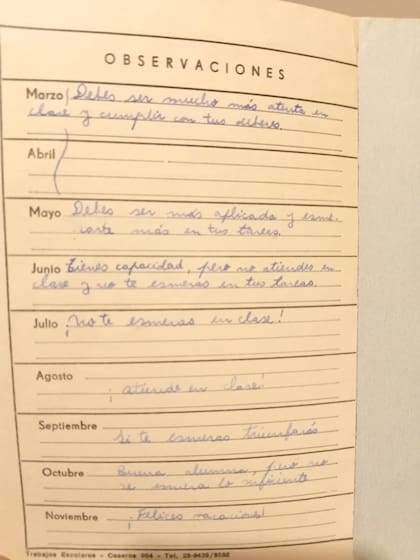 OBSERVACIONES
Marzo Debes ser mucho más atenta en
clase y cumplir con tus deberes.
Abril
Mayo Debes ser más aplicada y esme-
rarte más en tus tareas.
Junio Tienes capacidad, pero no atiendes en
clase y no te esmeras en tus tareas.
Julio ¡No te esmeras en clase!
Agosto
¡Atiende en clase!
Septiembre
Si te esmeras triunfarás
Octubre Buena alumna, pero no
se esmera lo suficiente
Noviembre ¡Felices vacaciones!
Trabajos Escolares - Caseros 994 - Tel.